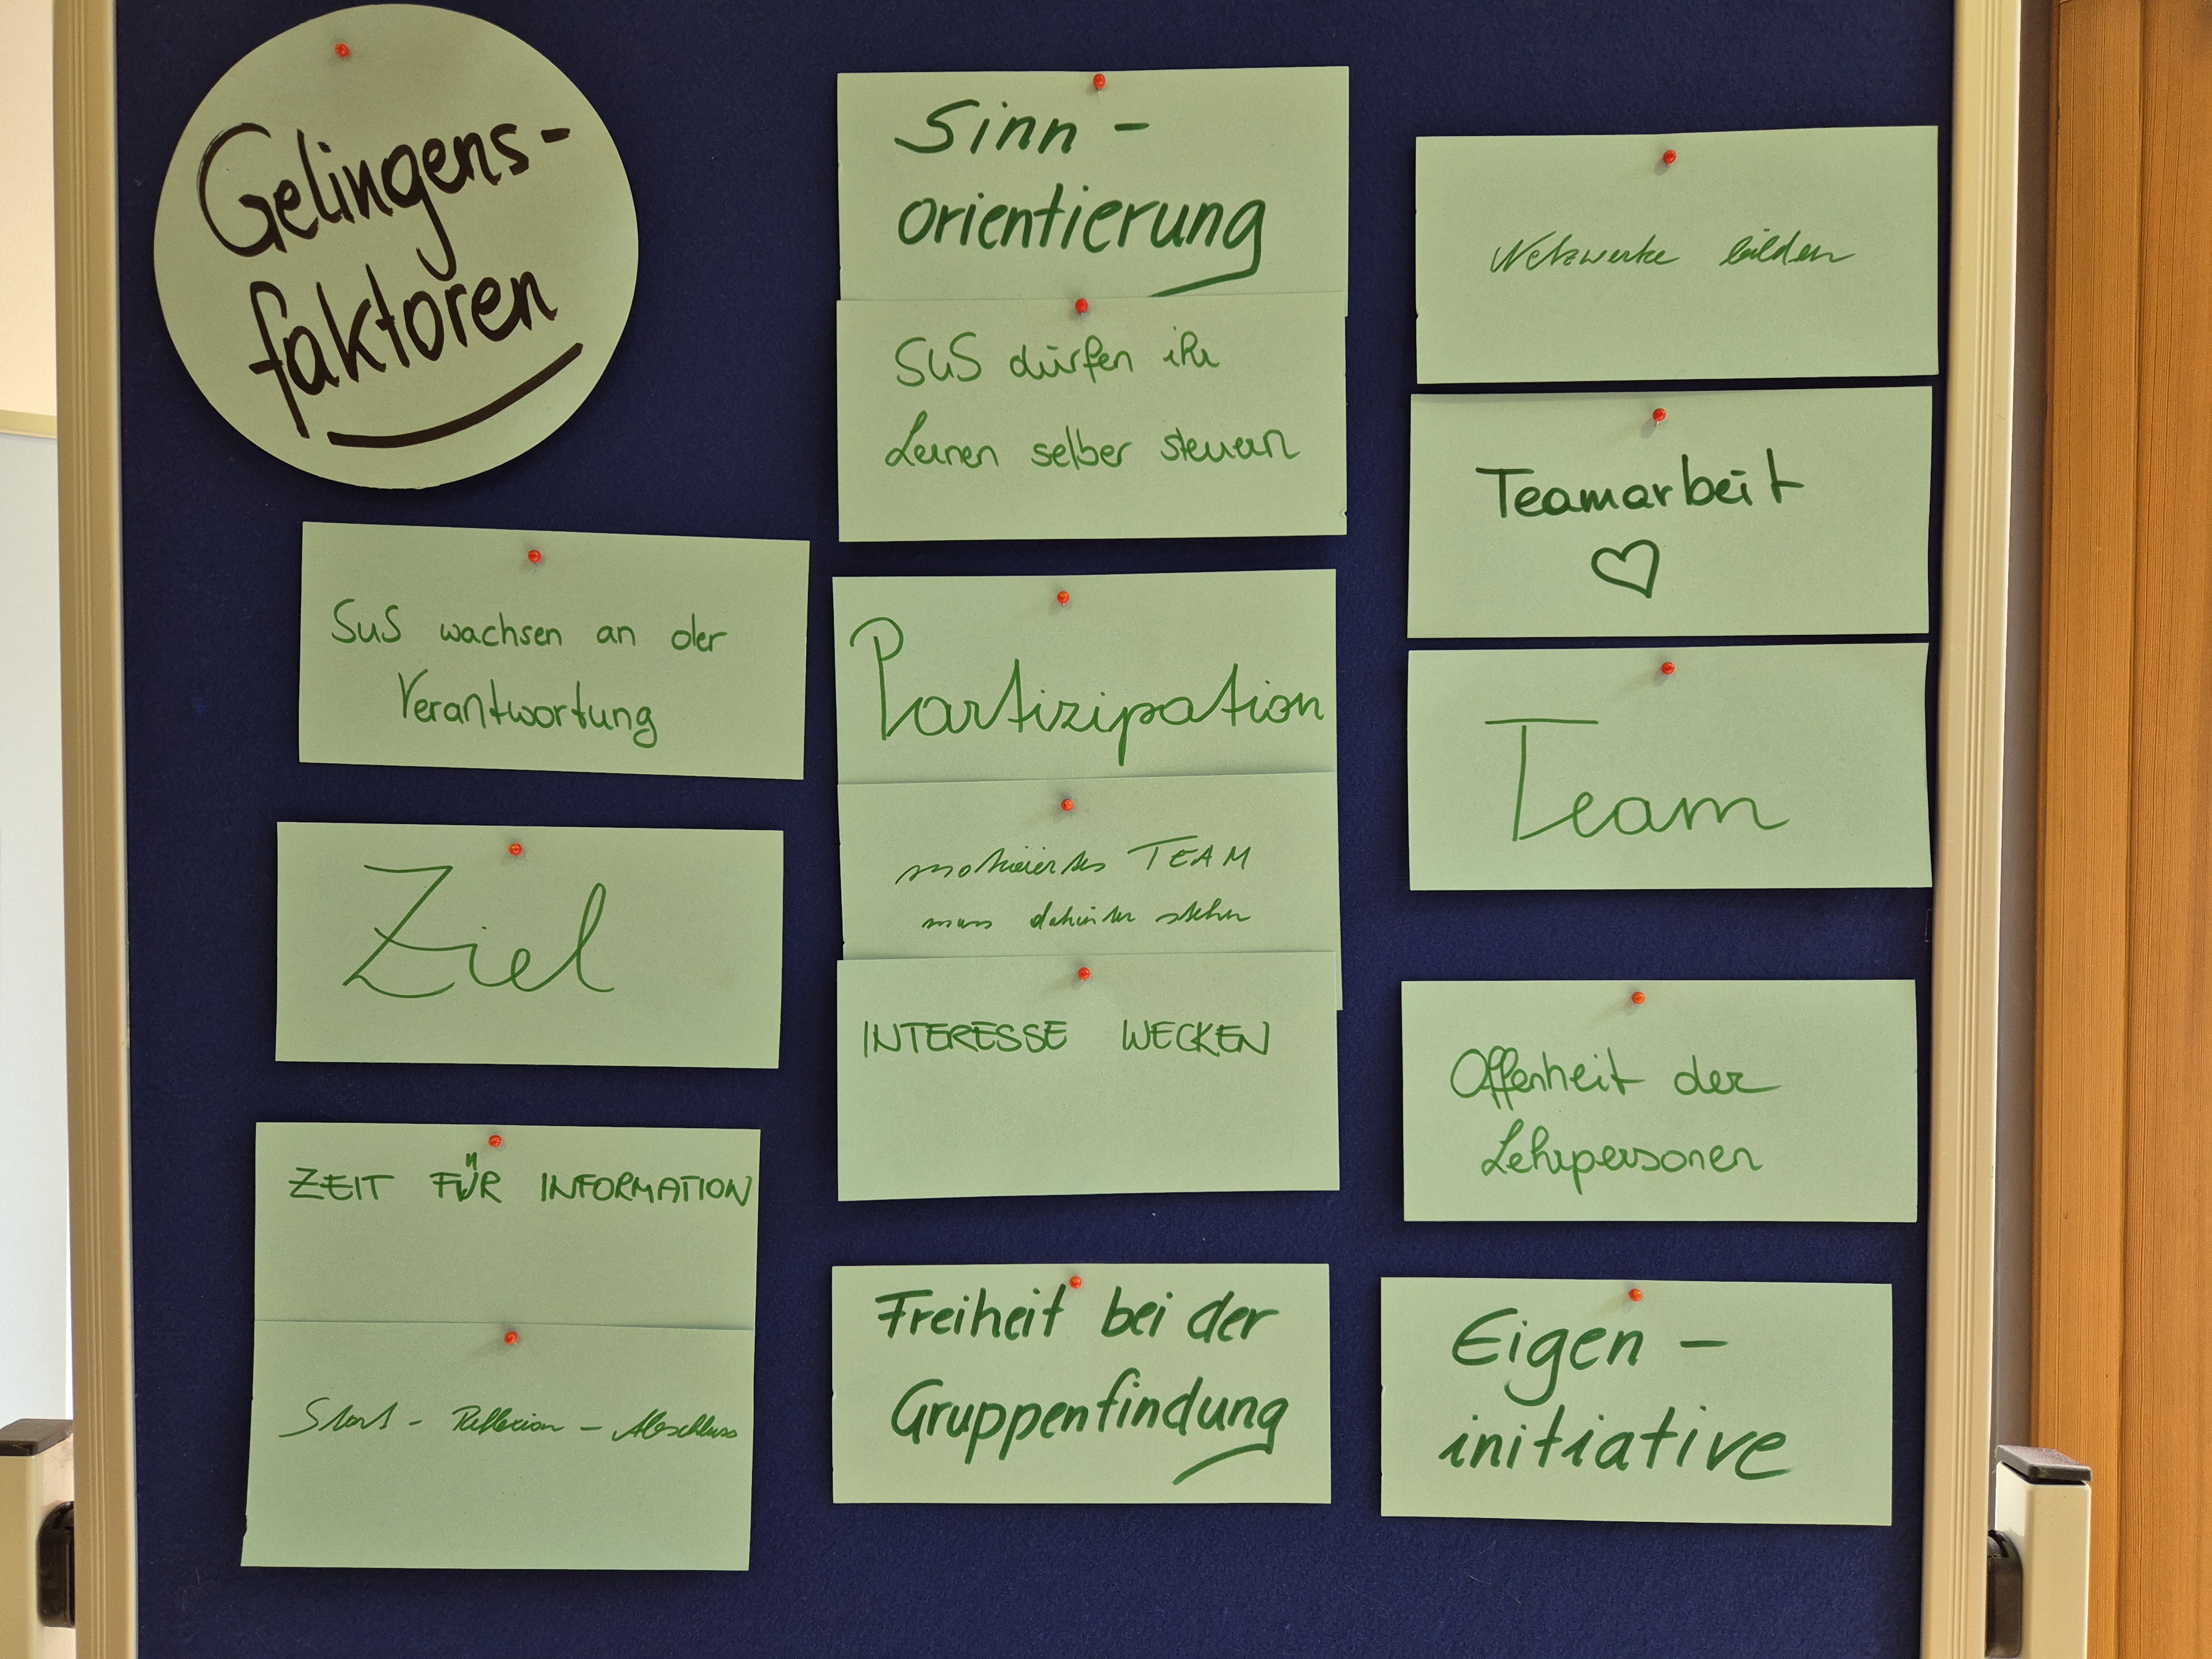 Gelingens-
faktoren
SuS wachsen an der
Verantwortung
Ziel
ZEIT FÜR INFORMATION
Start - Reflexion - Abschluss
Sinn-
orientierung
SuS dürfen ihr
Lernen selber steuern
Partizipation
motiviertes TEAM
muss dahinter stehen
INTERESSE WECKEN
Freiheit bei der
Gruppenfindung
Netzwerke bilden
Teamarbeit
♡
Team
Offenheit der
Lehrpersonen
Eigen-
initiative